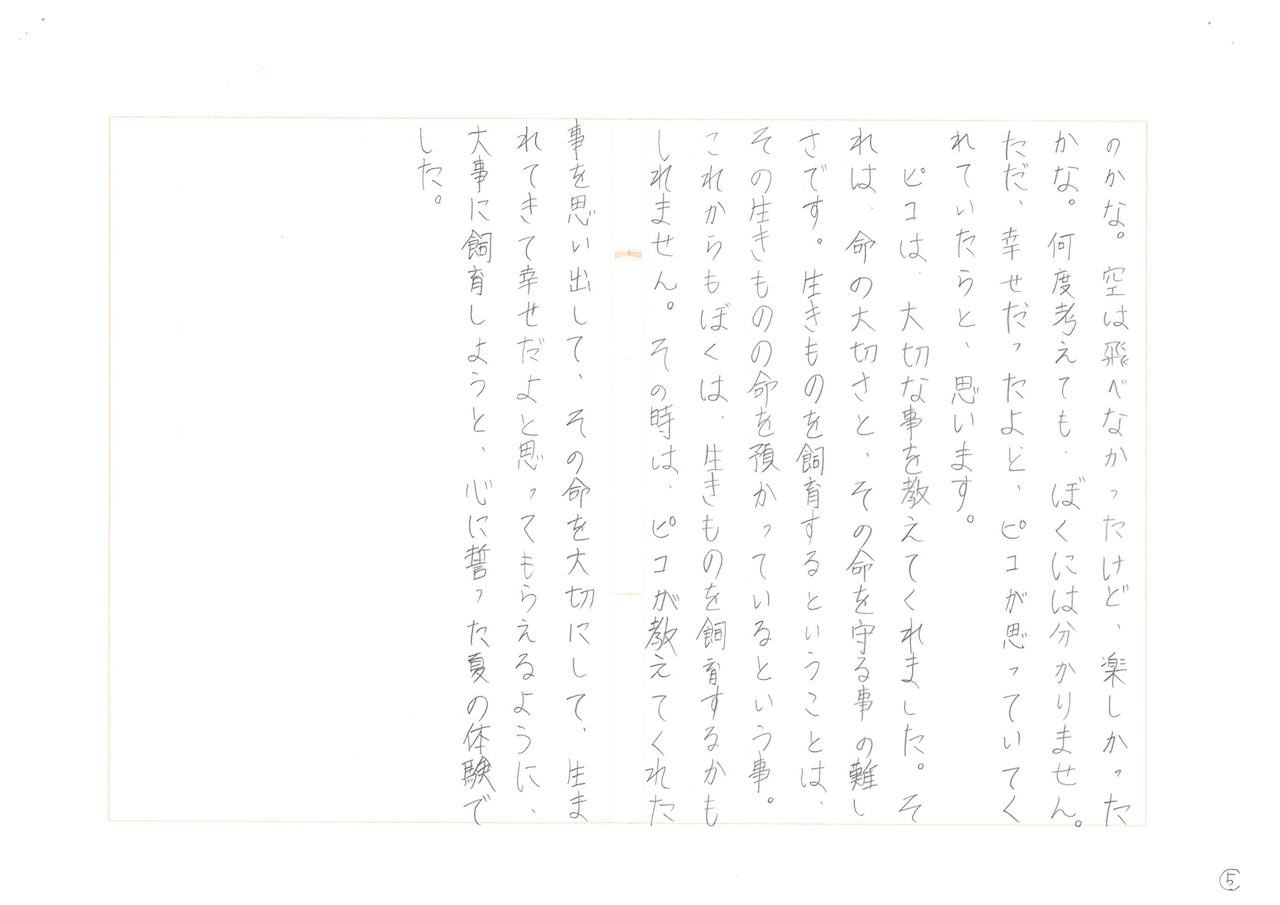 のかな。空は飛べなかったけど、楽しかった
かな。何度考えても、ぼくには分かりません。
ただ、幸せだったよと、ピコが思っていてく
れていたらと、思います。
ピコは、大切な事を教えてくれました。そ
れは、命の大切さと、その命を守る事の難し
さです。生きものを飼育するということは、
その生きものの命を預かっているという事。
これからもぼくは、生きものを飼育するかも
しれません。その時は、ピコが教えてくれた
事を思い出して、その命を大切にして、生ま
れてきて幸せだよと思ってもらえるように、
大事に飼育しようと、心に誓った夏の体験で
した。
⑤